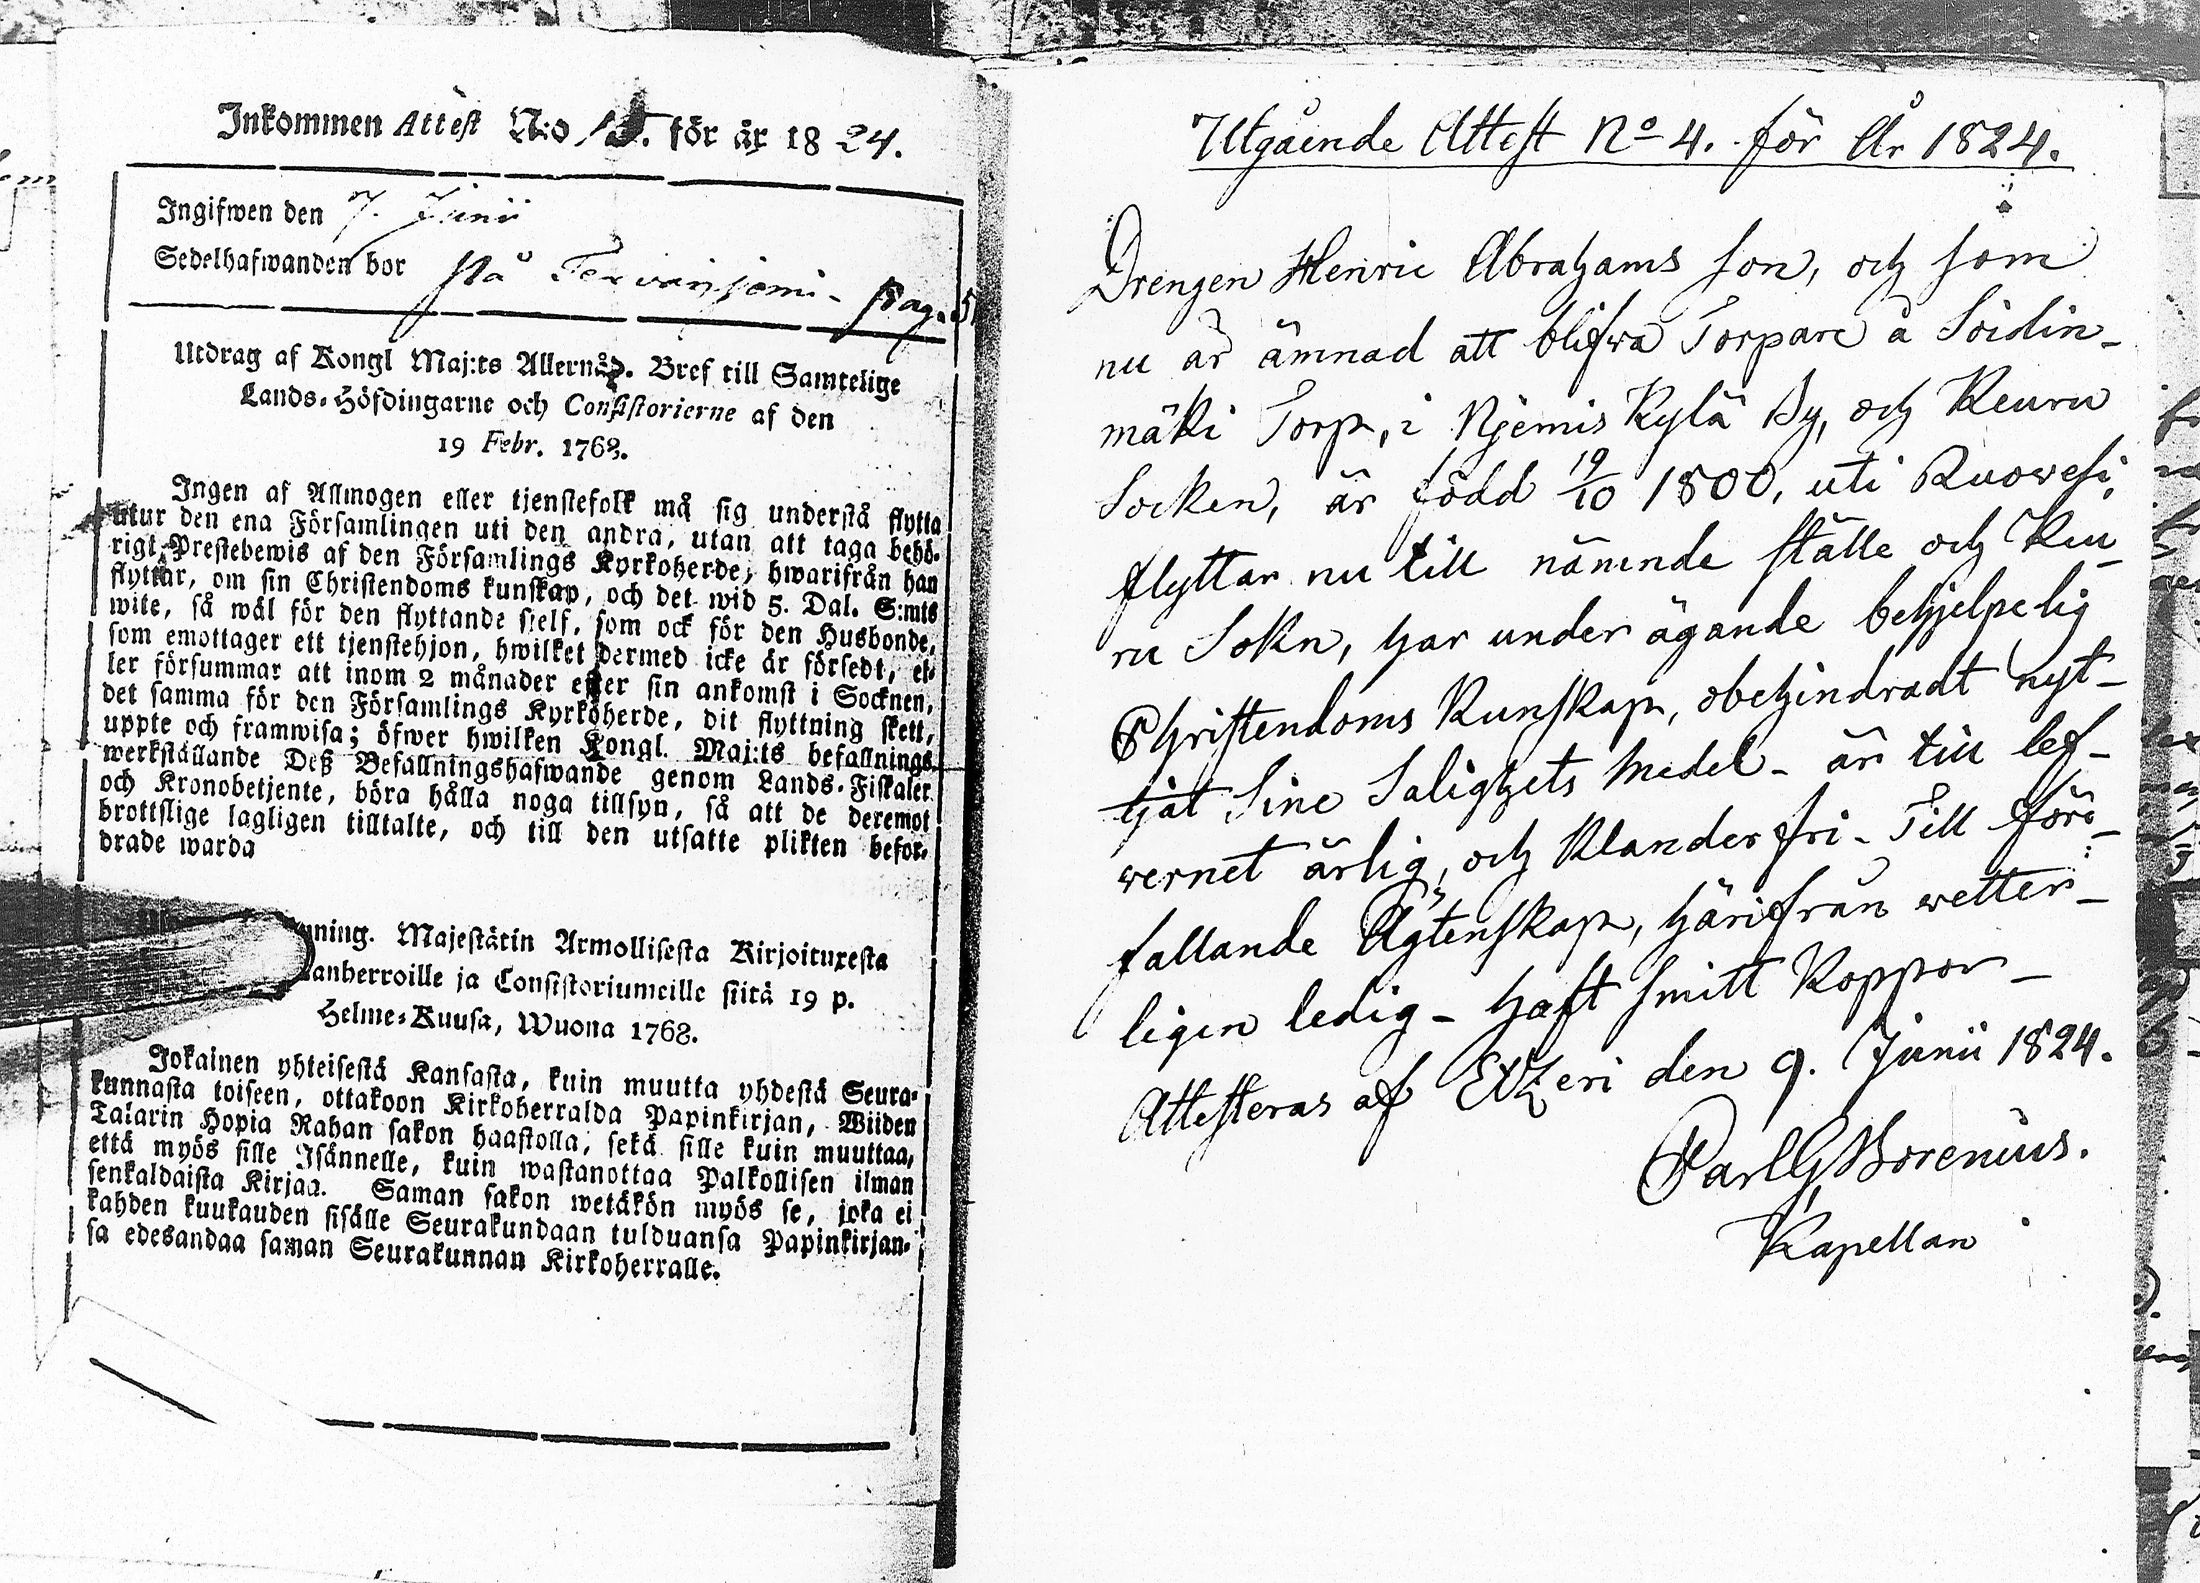 Inkommen Attest N:o 15. för år 1824.
Ingifwen den 7. Junii
Sedelhafwanden bor på Terwaniemi - pag. 5
Utdrag af Kongl Maj:ts Allernåd. Bref till Samtelige
Lands-Höfdingarne och Consistorierne af den
19 Febr. 1768.
Ingen af Allmogen eller tjenstefolk må sig understå flytta
utur den ena Församlingen uti den andra, utan att taga behö-
rigt Prestebewis af den Församlings Kyrkoherde, hwarifrån han
flyttar, om sin Christendoms kunskap, och det wid 5. Dal. S:mts
wite, så wäl för den flyttande sjelf, som ock för den Husbonde,
som emottager ett tjenstehjon, hwilket dermed icke är försedt, el-
ler försummar att inom 2 månader efter sin ankomst i Socknen,
det samma för den Församlings Kyrkoherde, dit flyttning skett,
uppte och framwisa; öfwer hwilken Kongl. Maj:ts befallnings
werkställande Deß Befallningshafwande genom Lands-Fiskaler
och Kronobetjente, böra hålla noga tillsyn, så att de deremot
brottslige lagligen tilltalte, och till den utsatte plikten befor-
drade warda
ning. Majestätin Armollisesta Kirjoituxesta
anherroille ja Consistoriumeille siitä 19 p.
Helme-Kuusa, Wuona 1768.
Jokainen yhteisestä Kansasta, kuin muutta yhdestä Seura-
kunnasta toiseen, ottakoon Kirkoherralda Papinkirjan, Wiiden
Talarin Hopia Rahan sakon haastolla, sekä sille kuin muuttaa,
että myös sille Isännelle, kuin wastanottaa Palkollisen ilman
senkaldaista Kirjaa. Saman sakon wetäkön myös se, joka ei
kahden kuukauden sisälle Seurakundaan tulduansa Papinkirjan-
sa edesandaa saman Seurakunnan Kirkoherralle.
Utgående Attest No 4. för År 1824.
Drengen Henric Abrahams son, och som
nu är ämnad att blifwa Torpare å Soidin-
mäki Torp, i Njemis Kylä By, och Keuru
Socken, är född 19/10 1800, uti Ruowesi,
flyttar nu till nämnde ställe och Keu-
ru Sokn, har under ägande behjelpelig
Christendoms Kunskap, obehindradt nyt-
tjat Sine Salighets medel - är till lef-
wernet ärlig, och Klanderfri - Till före-
fallande Ägtenskap, härifrån wetter-
ligen ledig - haft smitt Koppor -
Attesteras af Etzeri den 9. Junii 1824.
Carl G Borenius.
Kapellan